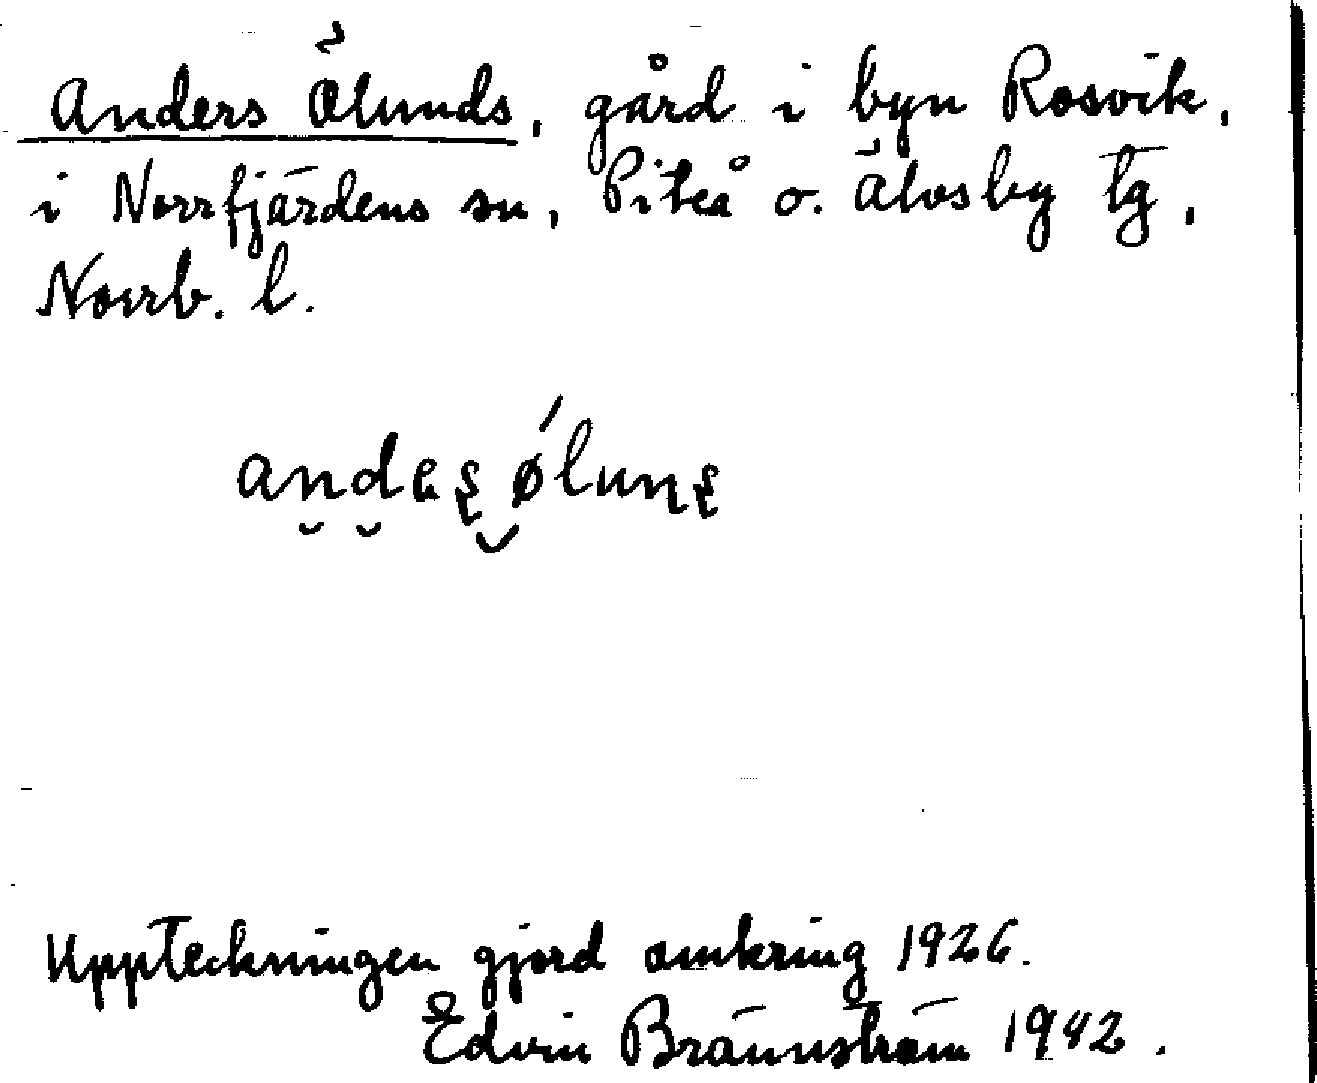 Anders Ölunds, gård i byn Rosvik,
i Norrfjärdens sn, Piteå o. Älvsby tg,
Norrb. l.
andes øluns
Uppteckningen gjord omkring 1926.
Edvin Brännström 1942.